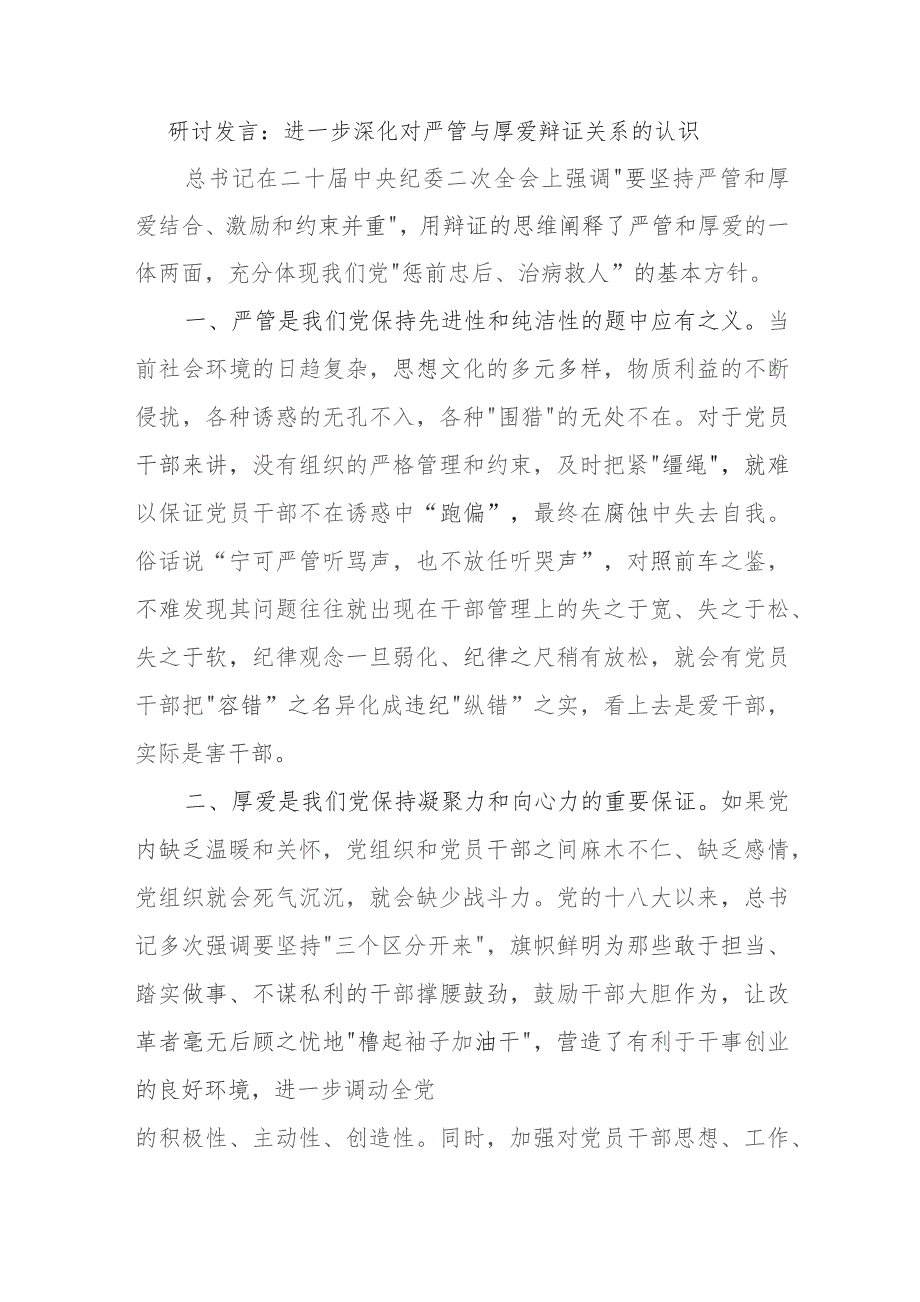 研讨发言：进一步深化对严管与厚爱辩证关系的认识
总书记在二十届中央纪委二次全会上强调"要坚持严管和厚
爱结合、激励和约束并重"，用辩证的思维阐释了严管和厚爱的一
体两面，充分体现我们党"惩前忠后、治病救人”的基本方针。
一、严管是我们党保持先进性和纯洁性的题中应有之义。当
前社会环境的日趋复杂，思想文化的多元多样，物质利益的不断
侵扰，各种诱惑的无孔不入，各种"围猎"的无处不在。对于党员
干部来讲，没有组织的严格管理和约束，及时把紧"缰绳"，就难
以保证党员干部不在诱惑中“跑偏”，最终在腐蚀中失去自我。
俗话说“宁可严管听骂声，也不放任听哭声”，对照前车之鉴，
不难发现其问题往往就出现在干部管理上的失之于宽、失之于松、
失之于软，纪律观念一旦弱化、纪律之尺稍有放松，就会有党员
干部把"容错”之名异化成违纪"纵错”之实，看上去是爱干部，
实际是害干部。
二、厚爱是我们党保持凝聚力和向心力的重要保证。如果党
内缺乏温暖和关怀，党组织和党员干部之间麻木不仁、缺乏感情，
党组织就会死气沉沉，就会缺少战斗力。党的十八大以来，总书
记多次强调要坚持"三个区分开来"，旗帜鲜明为那些敢于担当、
踏实做事、不谋私利的干部撑腰鼓劲，鼓励干部大胆作为，让改
革者毫无后顾之忧地"橹起袖子加油干"，营造了有利于干事创业
的良好环境，进一步调动全党
的积极性、主动性、创造性。同时，加强对党员干部思想、工作、